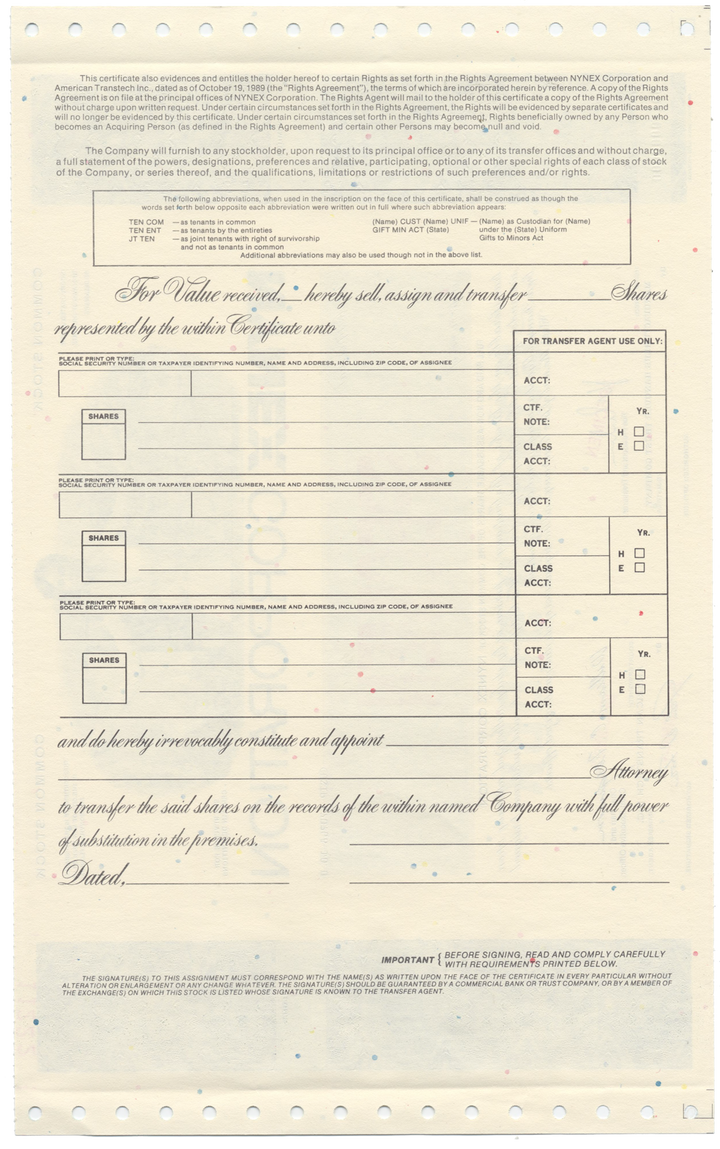 This certificate also evidences and entitles the holder hereof to certain Rights as set forth in the Rights Agreement between NYNEX Corporation and
American Transtech Inc., dated as of October 19, 1989 (the "Rights Agreement"), the terms of which are incorporated herein by reference. A copy of the Rights
Agreement is on file at the principal offices of NYNEX Corporation. The Rights Agent will mail to the holder of this certificate a copy of the Rights Agreement
without charge upon written request. Under certain circumstances set forth in the Rights Agreement, the Rights will be evidenced by separate certificates and
will no longer be evidenced by this certificate. Under certain circumstances set forth in the Rights Agreement, Rights beneficially owned by any Person who
becomes an Acquiring Person (as defined in the Rights Agreement) and certain other Persons may become null and void.
The Company will furnish to any stockholder, upon request to its principal office or to any of its transfer offices and without charge,
a full statement of the powers, designations, preferences and relative, participating, optional or other special rights of each class of stock
of the Company, or series thereof, and the qualifications, limitations or restrictions of such preferences and/or rights.
The following abbreviations, when used in the inscription on the face of this certificate, shall be construed as though the
words set forth below opposite each abbreviation were written out in full where such abbreviation appears:
TEN COM — as tenants in common (Name) CUST (Name) UNIF — (Name) as Custodian for (Name)
TEN ENT — as tenants by the entireties GIFT MIN ACT (State) under the (State) Uniform
JT TEN — as joint tenants with right of survivorship Gifts to Minors Act
and not as tenants in common
Additional abbreviations may also be used though not in the above list.
For Value received, ___ hereby sell, assign and transfer ___ Shares
represented by the within Certificate unto
FOR TRANSFER AGENT USE ONLY:
PLEASE PRINT OR TYPE:
SOCIAL SECURITY NUMBER OR TAXPAYER IDENTIFYING NUMBER, NAME AND ADDRESS, INCLUDING ZIP CODE, OF ASSIGNEE
ACCT:
SHARES
CTF. YR.
NOTE:
H
CLASS E
ACCT:
PLEASE PRINT OR TYPE:
SOCIAL SECURITY NUMBER OR TAXPAYER IDENTIFYING NUMBER, NAME AND ADDRESS, INCLUDING ZIP CODE, OF ASSIGNEE
ACCT:
SHARES
CTF. YR.
NOTE:
H
CLASS E
ACCT:
PLEASE PRINT OR TYPE:
SOCIAL SECURITY NUMBER OR TAXPAYER IDENTIFYING NUMBER, NAME AND ADDRESS, INCLUDING ZIP CODE, OF ASSIGNEE
ACCT:
SHARES
CTF. YR.
NOTE:
H
CLASS E
ACCT:
and do hereby irrevocably constitute and appoint
Attorney
to transfer the said shares on the records of the within named Company with full power
of substitution in the premises.
Dated,
IMPORTANT { BEFORE SIGNING, READ AND COMPLY CAREFULLY
WITH REQUIREMENTS PRINTED BELOW.
THE SIGNATURE(S) TO THIS ASSIGNMENT MUST CORRESPOND WITH THE NAME(S) AS WRITTEN UPON THE FACE OF THE CERTIFICATE IN EVERY PARTICULAR WITHOUT
ALTERATION OR ENLARGEMENT OR ANY CHANGE WHATEVER. THE SIGNATURE(S) SHOULD BE GUARANTEED BY A COMMERCIAL BANK OR TRUST COMPANY, OR BY A MEMBER OF
THE EXCHANGE(S) ON WHICH THIS STOCK IS LISTED WHOSE SIGNATURE IS KNOWN TO THE TRANSFER AGENT.